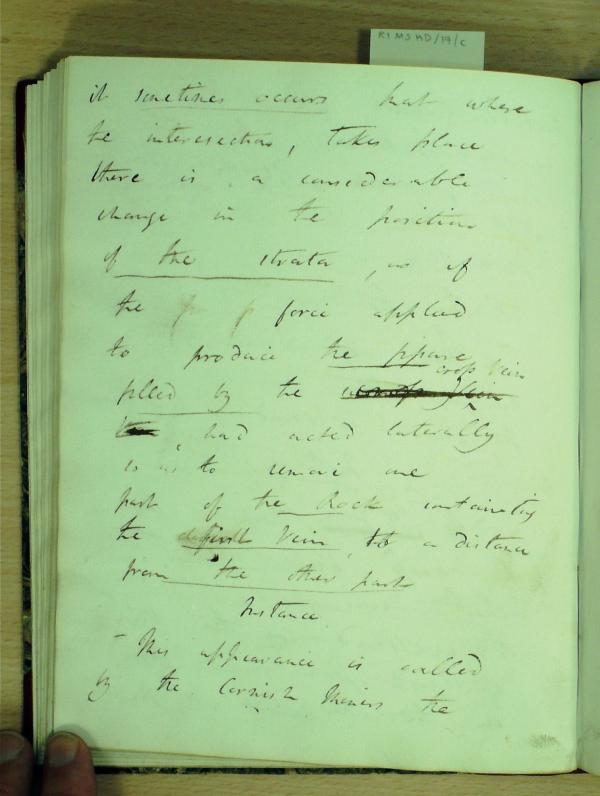 RI MS HD/19/c
it sometimes occurs that where
the intersection, takes place
there is a considerable
change in the position
of the strata, as if
the force applied
to produce the fissure
cross Vein
filled by the
had acted laterally
so as to remove one
part of the Rock containing
the first Vein, to a distance
from the other part
Instance
- This appearance is called
by the Cornish Miners the